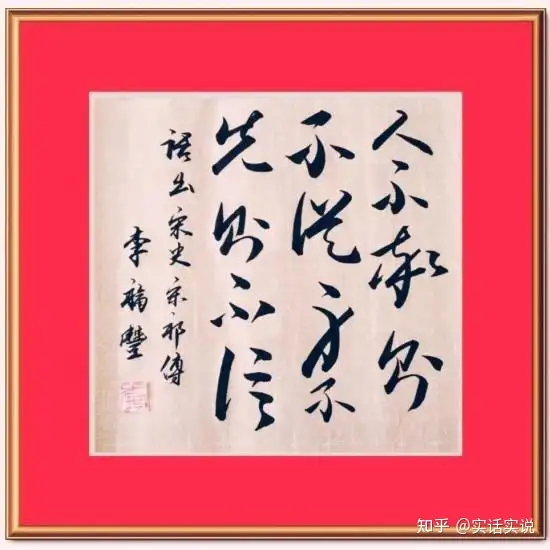 人不率則
不從身不
先則不信
語出宋史宋祁傳
李福豐
知乎 @实话实说